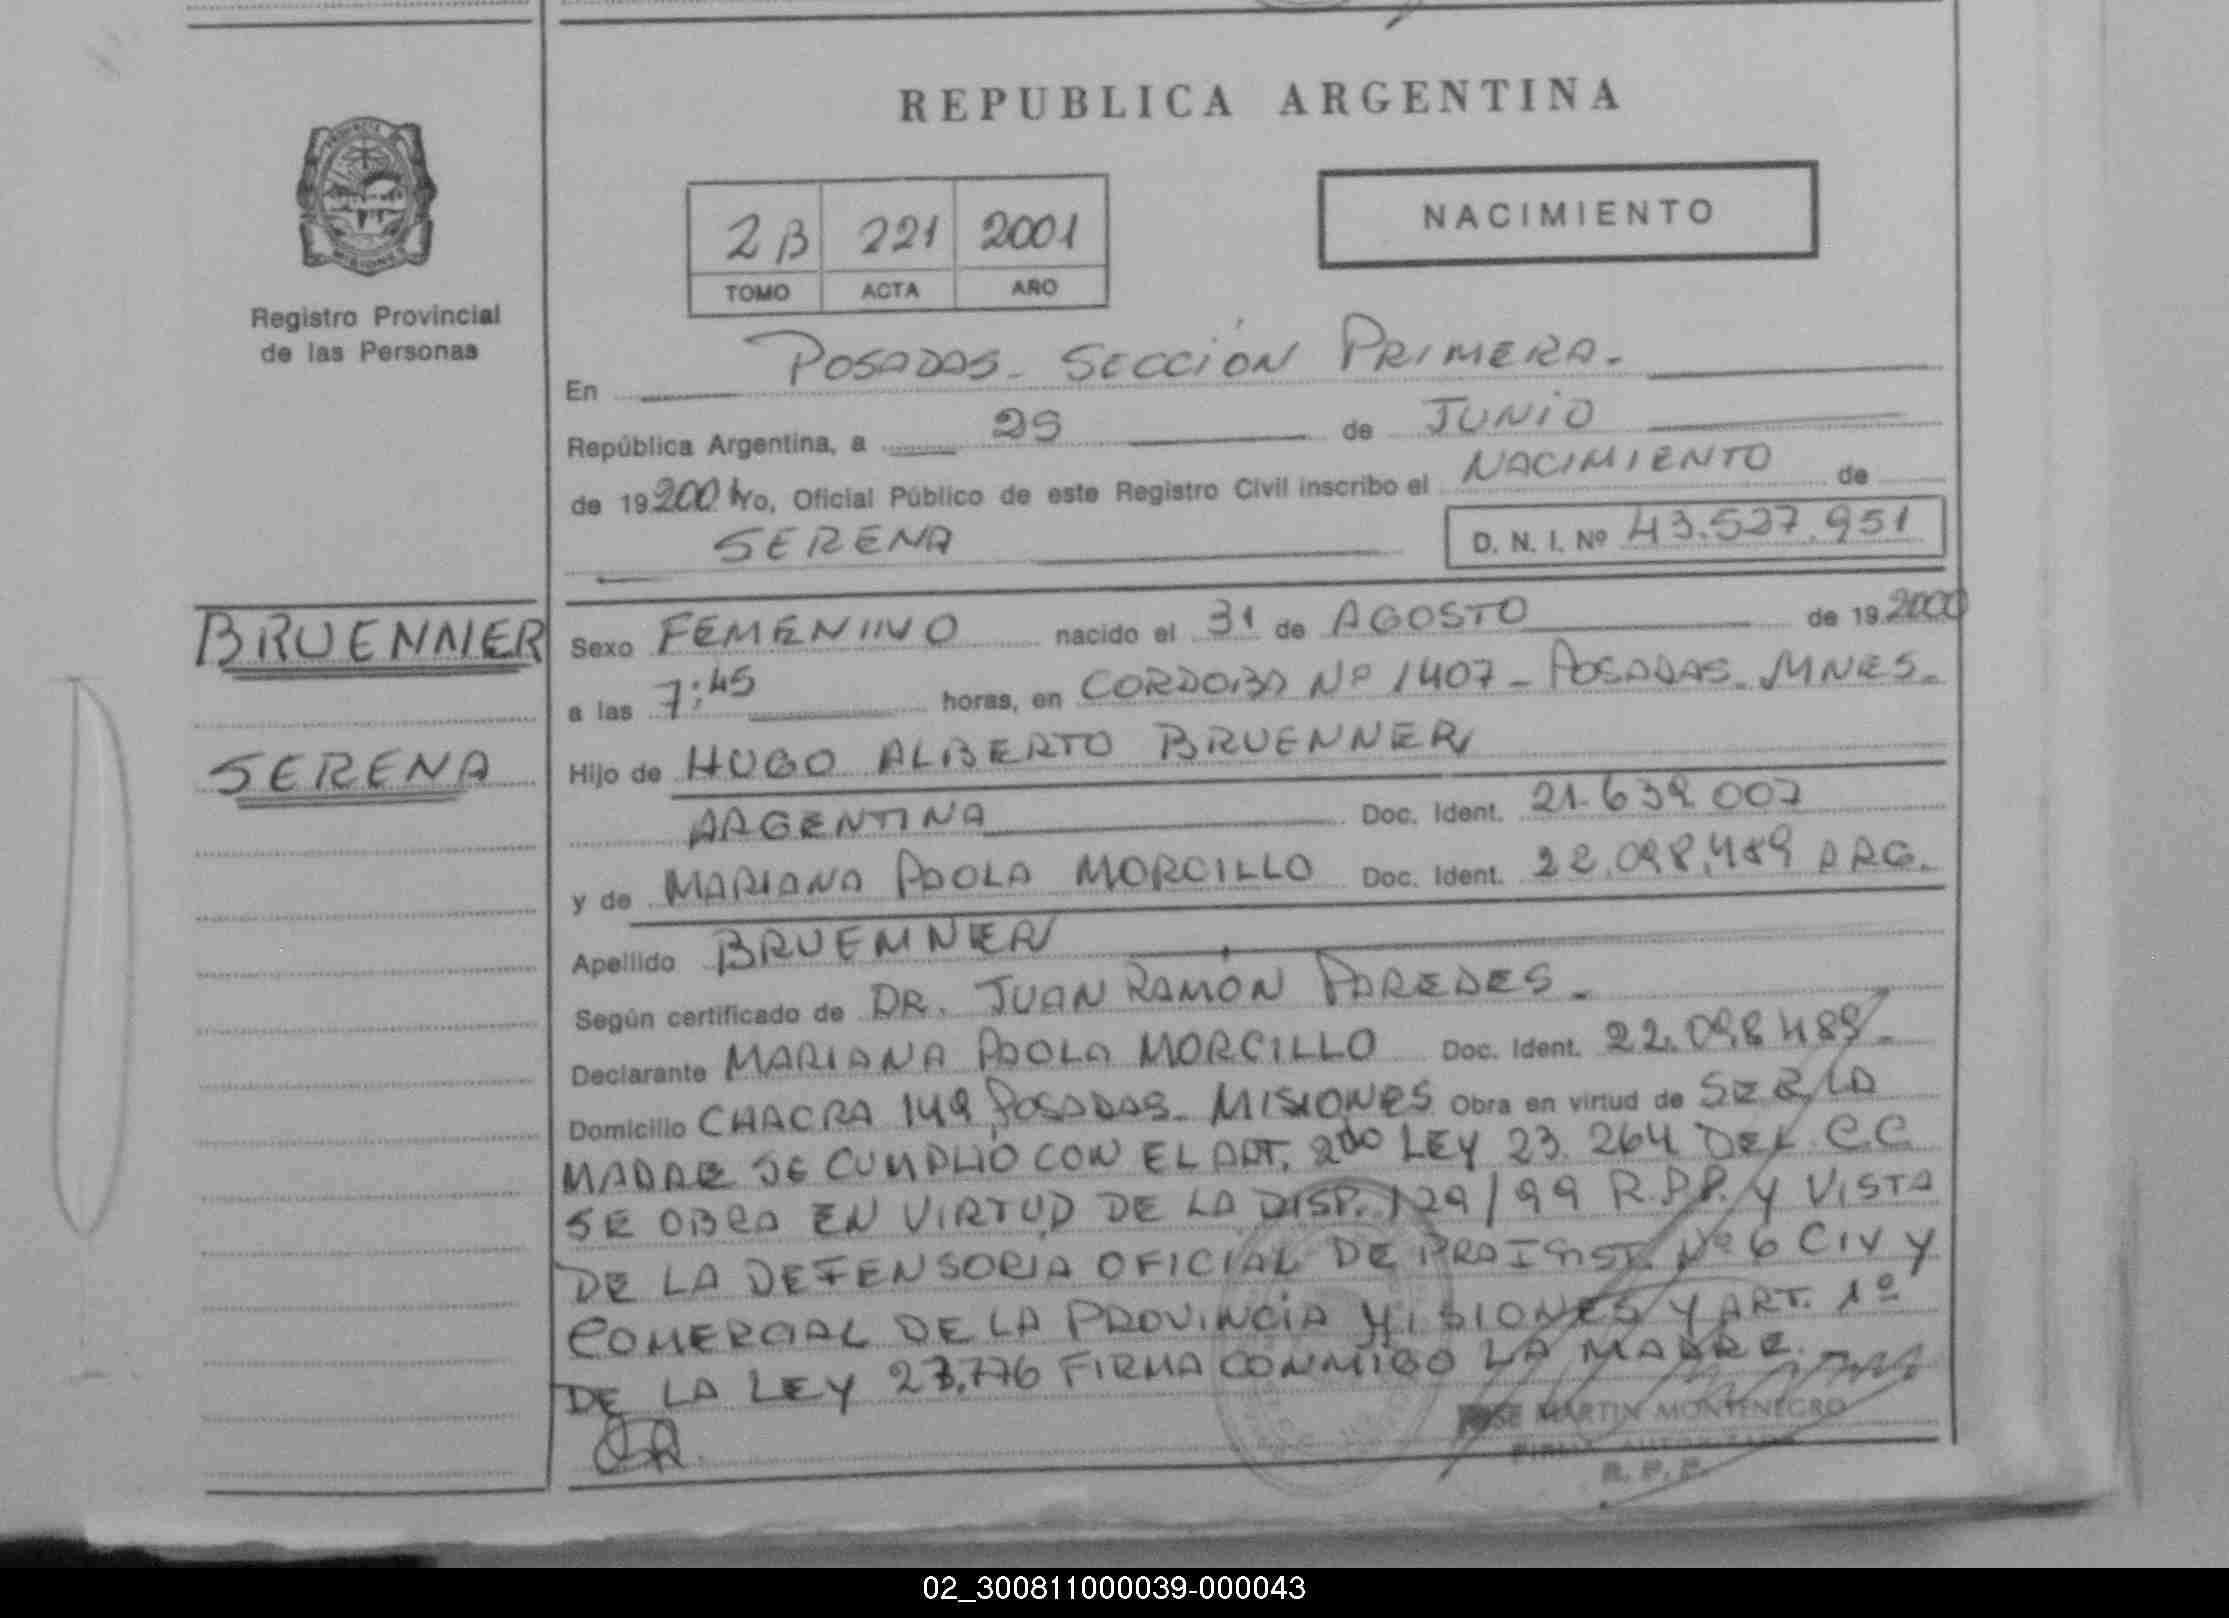 REPUBLICA ARGENTINA
NACIMIENTO
2B 221 2001
TOMO ACTA AÑO
Registro Provincial
de las Personas
En POSADAS - SECCIÓN PRIMERA.
República Argentina, a 29 de JUNIO
de 19 2001 Yo, Oficial Público de este Registro Civil inscribo el NACIMIENTO de
SERENA D. N. I. Nº 43.527.951
BRUENNER
SERENA
Sexo FEMENINO nacido el 31 de AGOSTO de 19 2000
a las 7:45 horas, en CORDOBA Nº 1407 - POSADAS - MNES -
Hijo de HUGO ALBERTO BRUENNER
ARGENTINA Doc. Ident. 21.639.007
y de MARIANA PAOLA MORCILLO Doc. Ident. 22.098.489 ARG.
Apellido BRUENNER
Según certificado de DR. JUAN RAMÓN PAREDES -
Declarante MARIANA PAOLA MORCILLO Doc. Ident. 22.098.489 -
Domicilio CHACRA 149 POSADAS - MISIONES Obra en virtud de SER LA
MADRE SE CUMPLIÓ CON EL ART. 2do LEY 23.264 DEL C.C
SE OBRA EN VIRTUD DE LA DISP. 129/99 R.P.P. Y VISTA
DE LA DEFENSORIA OFICIAL DE PRA INST. Nº 6 CIV Y
COMERCIAL DE LA PROVINCIA MISIONES Y ART. 1º
DE LA LEY 23.776 FIRMA CONMIGO LA MADRE. -
JOSE MARTIN MONTENEGRO
R. P. P.
02_300811000039-000043